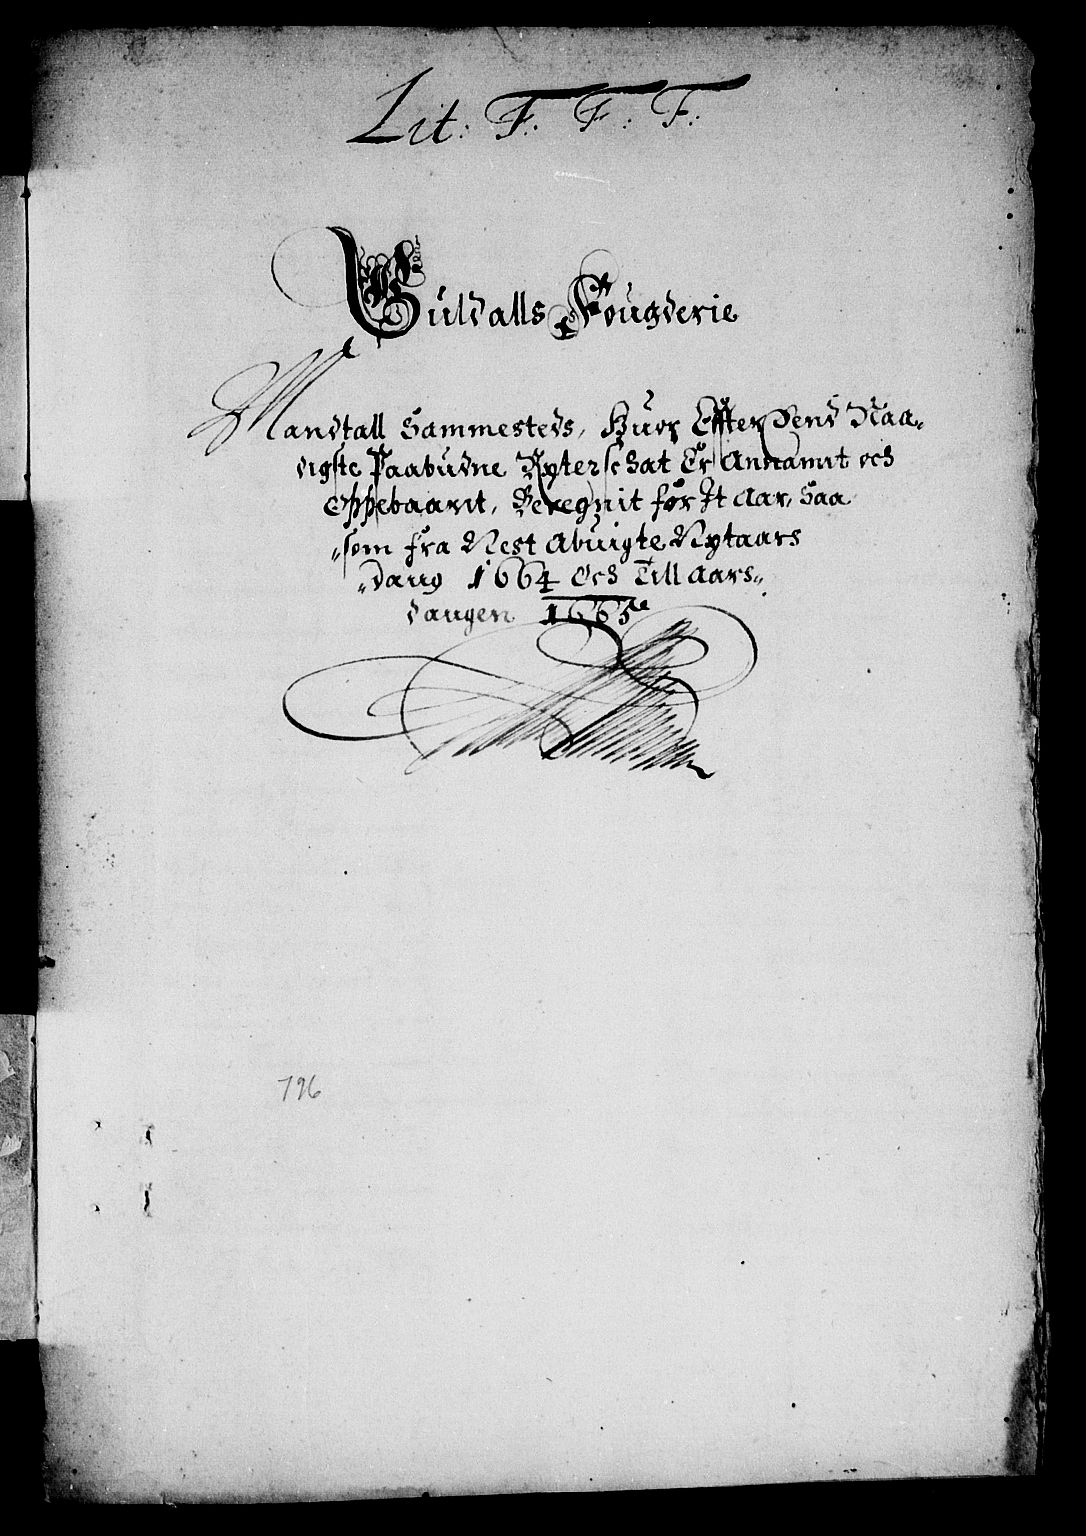 Lit: F: F: F:
Guldalls Fougderie
Mandtall Sammesteds, Huor Effter Dend Naa-
digste Paabudne Rytterschat Er Annamit och
Oppebaarit, Beregnit for It Aar, Saa
som fra Nest Abuigte Nytaars
daug 1664 Och Till Aars
daugen 1665
796